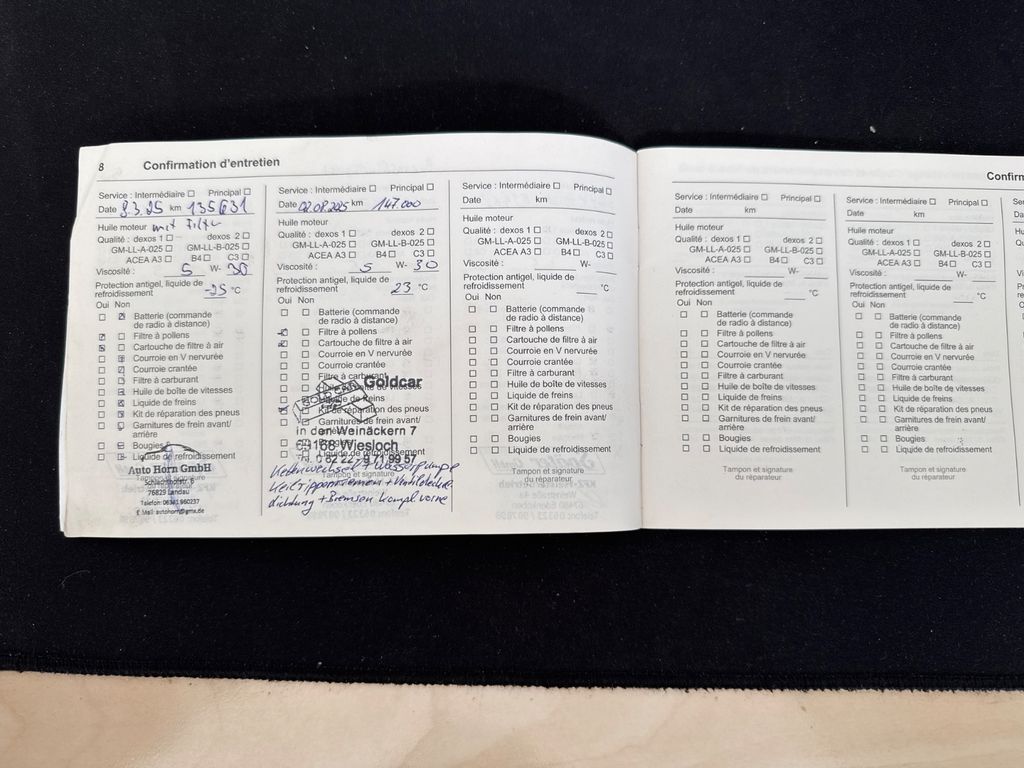 8
Confirmation d'entretien
Service : Intermédiaire ☐ Principal ☐
Date 8.3.25 km 135631
Huile moteur mit Filter
Qualité : dexos 1 ☐ dexos 2 ☐
GM-LL-A-025 ☐ GM-LL-B-025 ☐
ACEA A3 ☐ B4 ☐ C3 ☐
Viscosité : 5 W- 30
Protection antigel, liquide de
refroidissement -25 °C
Oui Non
Batterie (commande
de radio à distance)
Filtre à pollens
Cartouche de filtre à air
Courroie en V nervurée
Courroie crantée
Filtre à carburant
Huile de boîte de vitesses
Liquide de freins
Kit de réparation des pneus
Garnitures de frein avant/
arrière
Bougies
Liquide de refroidissement
Auto Horn GmbH
Tampon et signature
76829 Landau
Telefon: 06341 960237
E Mail: autohorn@gmx.de
Service : Intermédiaire ☐ Principal ☐
Date 02.08.2025 km 147.000
Huile moteur
Qualité : dexos 1 ☐ dexos 2 ☐
GM-LL-A-025 ☐ GM-LL-B-025 ☐
ACEA A3 ☐ B4 ☐ C3 ☐
Viscosité : 5 W- 30
Protection antigel, liquide de
refroidissement 23 °C
Oui Non
Batterie (commande
de radio à distance)
Filtre à pollens
Cartouche de filtre à air
Courroie en V nervurée
Courroie crantée
Filtre à carburant
Goldcar
Kit de réparation des pneus
Garnitures de frein avant/
In den Weinäckern 7
68 Wiesloch
Liquide de refroidissement
0 62 22 - 9 71 99 57
Kettenwechsel + Wasserpumpe
Keilrippenriemen + Ventildeckel
dichtung + Bremsen kompl vorne
Service : Intermédiaire ☐ Principal ☐
Date km
Huile moteur
Qualité : dexos 1 ☐ dexos 2 ☐
GM-LL-A-025 ☐ GM-LL-B-025 ☐
ACEA A3 ☐ B4 ☐ C3 ☐
Viscosité : W-
Protection antigel, liquide de
refroidissement °C
Oui Non
Batterie (commande
de radio à distance)
Filtre à pollens
Cartouche de filtre à air
Courroie en V nervurée
Courroie crantée
Filtre à carburant
Huile de boîte de vitesses
Liquide de freins
Kit de réparation des pneus
Garnitures de frein avant/
arrière
Bougies
Liquide de refroidissement
Tampon et signature
du réparateur
Confirm
Service : Intermédiaire ☐ Principal ☐
Date km
Huile moteur
Qualité : dexos 1 ☐ dexos 2 ☐
GM-LL-A-025 ☐ GM-LL-B-025 ☐
ACEA A3 ☐ B4 ☐ C3 ☐
Viscosité : W-
Protection antigel, liquide de
refroidissement °C
Oui Non
Batterie (commande
de radio à distance)
Filtre à pollens
Cartouche de filtre à air
Courroie en V nervurée
Courroie crantée
Filtre à carburant
Huile de boîte de vitesses
Liquide de freins
Kit de réparation des pneus
Garnitures de frein avant/
arrière
Bougies
Liquide de refroidissement
Tampon et signature
du réparateur
Service : Intermédiaire ☐ Principal ☐
Date km
Huile moteur
Qualité : dexos 1 ☐ dexos 2 ☐
GM-LL-A-025 ☐ GM-LL-B-025 ☐
ACEA A3 ☐ B4 ☐ C3 ☐
Viscosité : W-
Protection antigel, liquide de
refroidissement °C
Oui Non
Batterie (commande
de radio à distance)
Filtre à pollens
Cartouche de filtre à air
Courroie en V nervurée
Courroie crantée
Filtre à carburant
Huile de boîte de vitesses
Liquide de freins
Kit de réparation des pneus
Garnitures de frein avant/
arrière
Bougies
Liquide de refroidissement
Tampon et signature
du réparateur